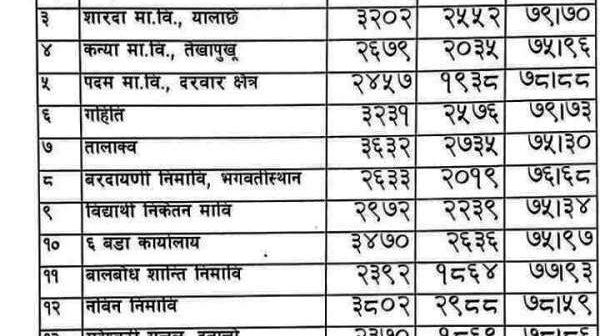 ३ शारदा मा.वि., यालाछें ३२०२ २५५२ ७९।७०
४ कन्या मा.वि., तेखापुखू २६७९ २०३५ ७५।९६
५ पदम मा.वि., दरवार क्षेत्र २४५७ १९३८ ७८।८८
६ गहिति ३२३१ २५७६ ७९।७३
७ तालाक्व ३६३२ २७३५ ७५।३०
८ बरदायणी निमावि, भगवतीस्थान २६३३ २०१९ ७६।६८
९ विद्यार्थी निकेतन मावि २९७२ २२३९ ७५।३४
१० ६ बडा कार्यालाय ३४७० २६३६ ७५।९७
११ बालबोध शान्ति निमावि २३९२ १८६४ ७७।९३
१२ नविन निमावि ३८०२ २९८८ ७८।५९